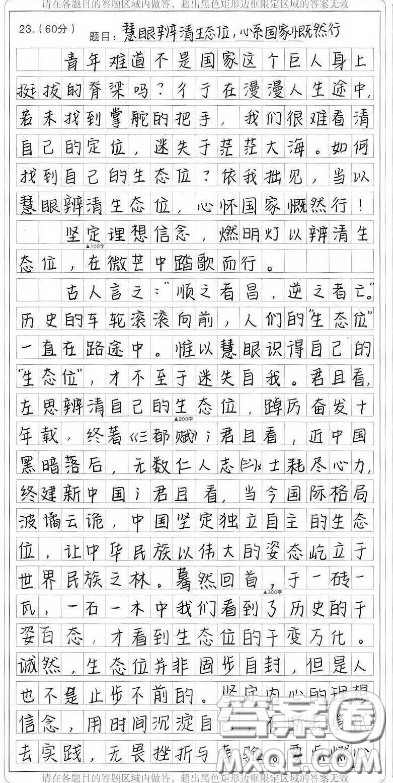 请在各题目的答题区域内做答，超出黑色矩形边框限定区域的答案无效
23.(60分) 题目：慧眼辨清生态位，心系国家慨然行
青年难道不是国家这个巨人身上
挺拔的脊梁吗？行于在漫漫人生途中，
若未找到掌舵的把手，我们很难看清
自己的定位，迷失于茫茫大海。如何
找到自己的生态位？依我拙见，当以
慧眼辨清生态位，心怀国家慨然行！
坚定理想信念，燃明灯以辨清生
▲100字
态位，在微芒中踏歌而行。
古人言之：“顺之者昌，逆之者亡。”
历史的车轮滚滚向前，人们的“生态位”
一直在路途中。惟以慧眼识得自己的
“生态位”，才不至于迷失自我。君且看，
左思辨清自己的生态位，踔厉奋发十
▲200字
年载，终著《三都赋》；君且看，近中国
黑暗落后，无数仁人志士耗尽心力，
终建新中国；君且看，当今国际格局
波谲云诡，中国坚定独立自主的生态
位，让中华民族以伟大的姿态屹立于
世界民族之林。蓦然回首，于一砖一
▲300字
瓦，一石一木中我们看到了历史的千
姿百态，才看到生态位的千变万化。
诚然，生态位并非固步自封，但是人
也不是止步不前的。坚定内心的理想
信念，用时间沉淀自
去实践，无畏挫折与
请在各题目的答题区域内做答，超出黑色矩形边框限定区域的答案无效